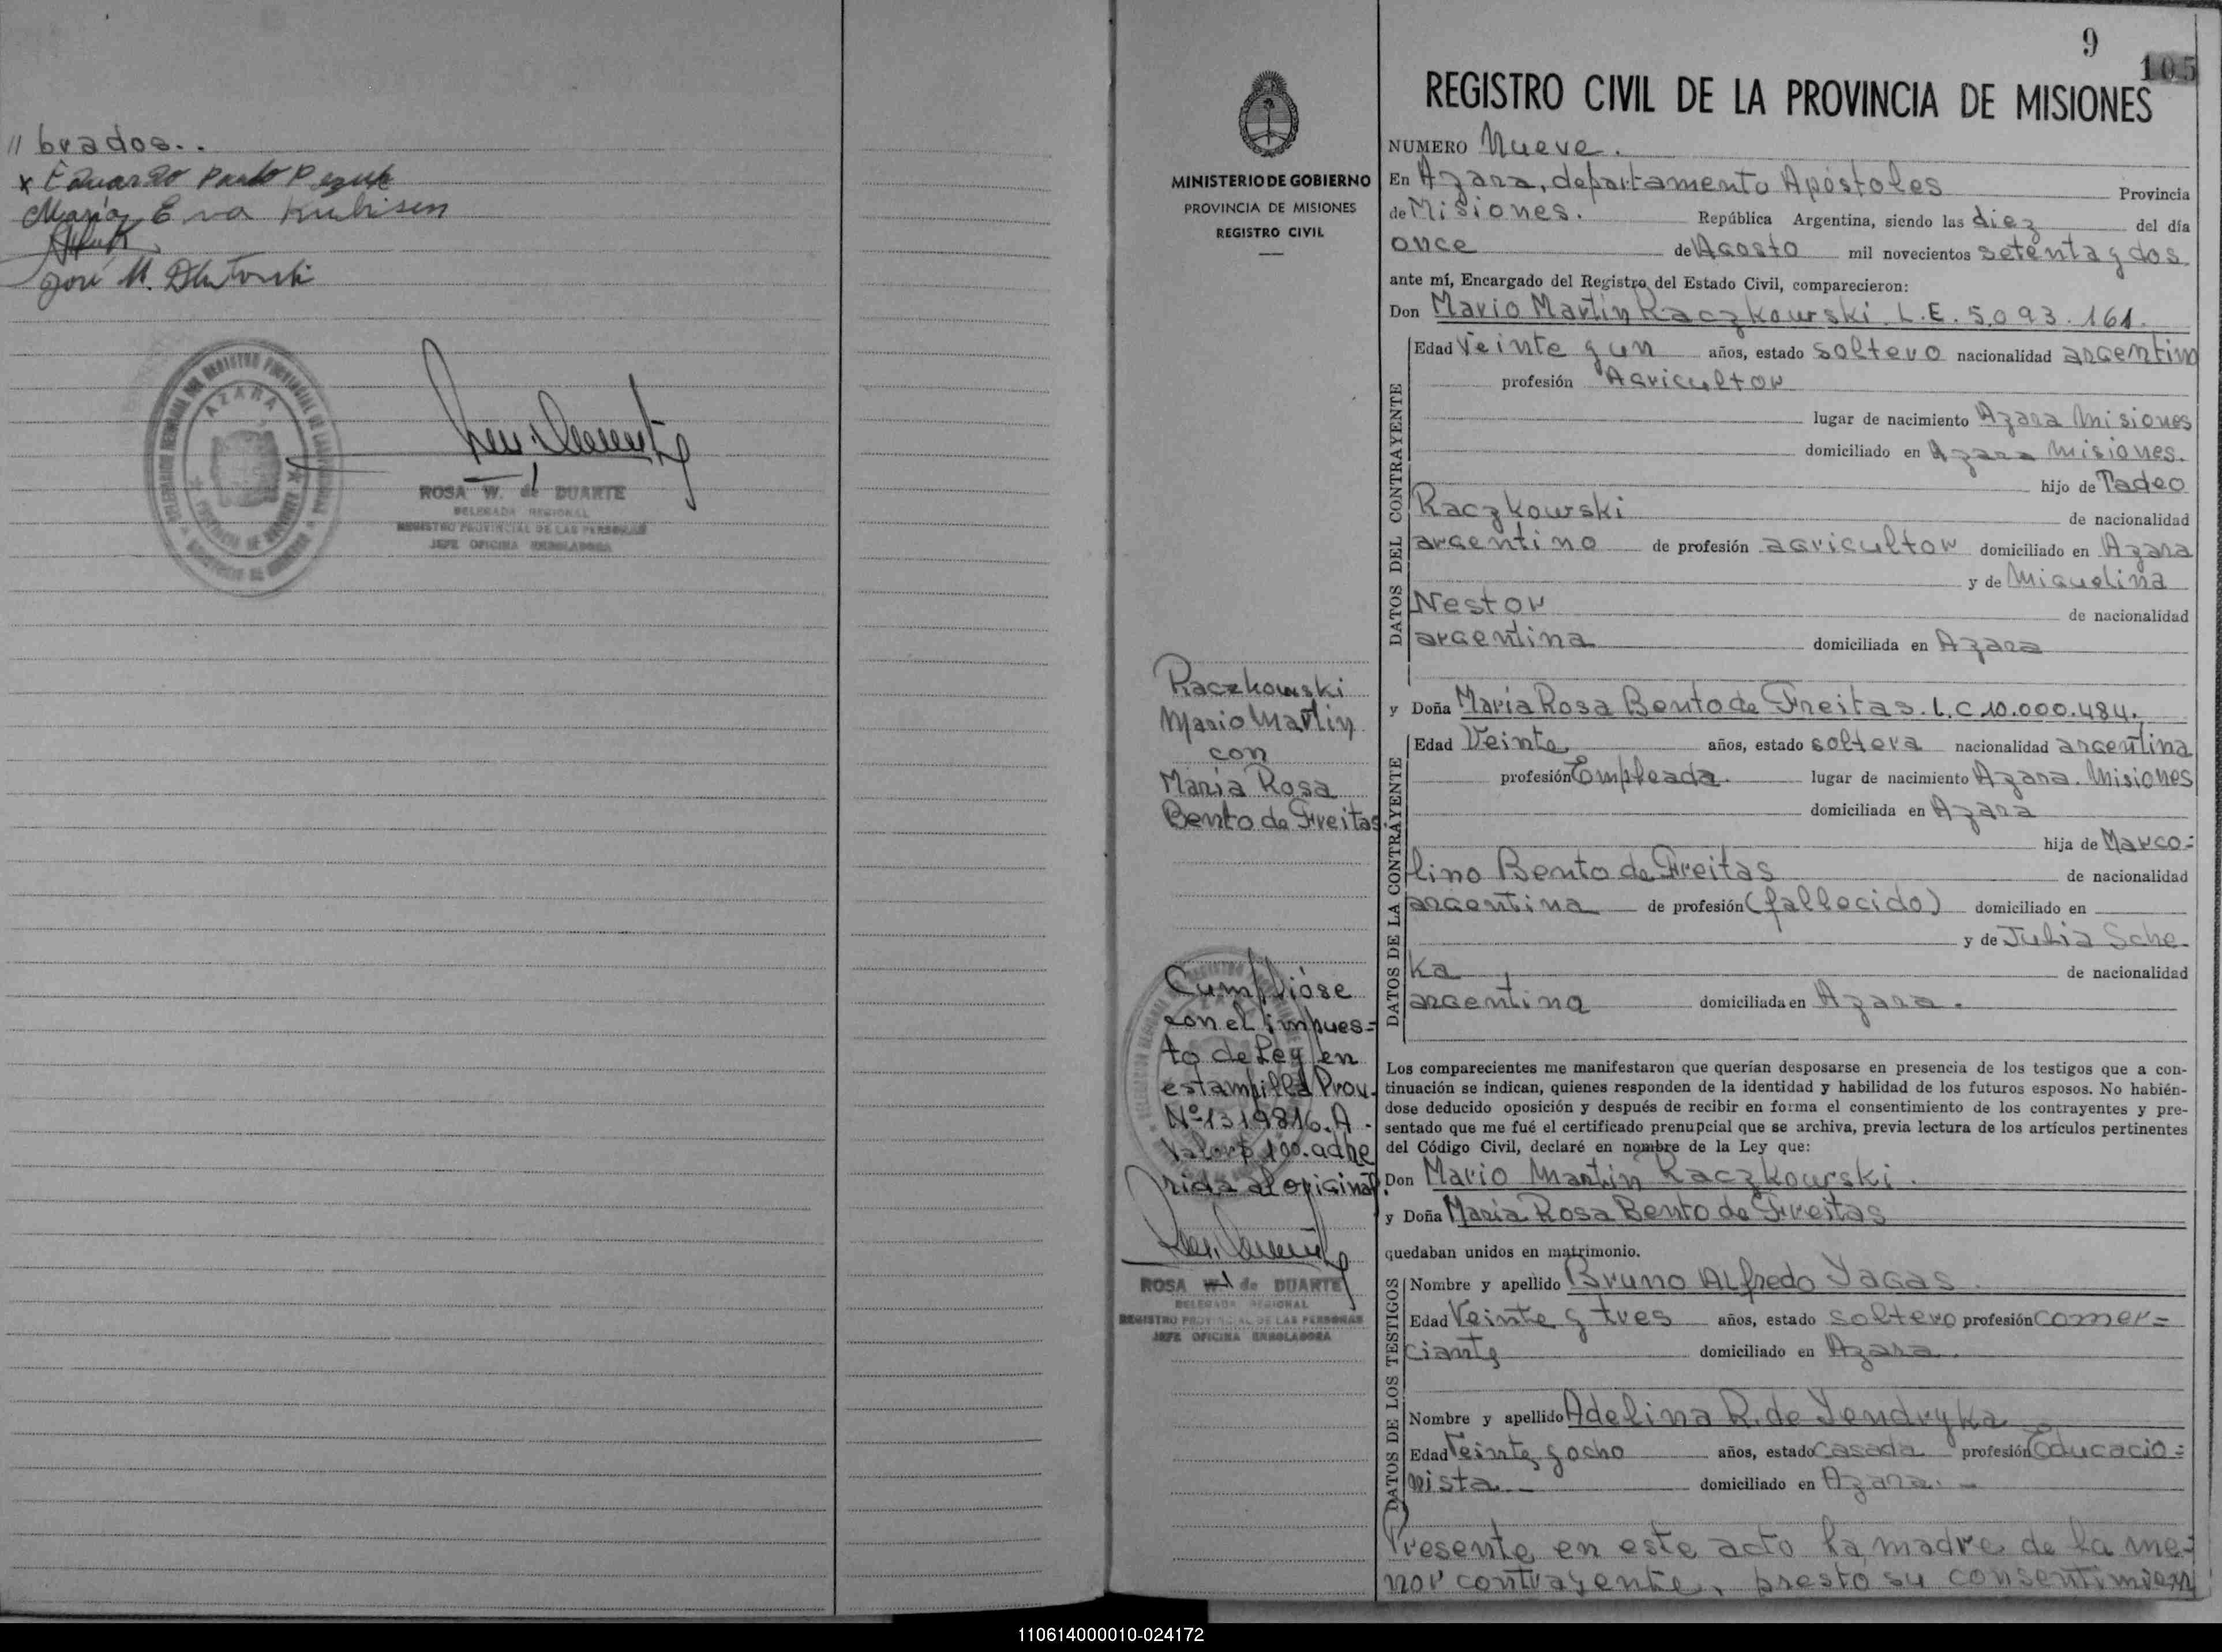 // brados..
x Eduardo Pablo Pezuk
María Eva Kubisen
José M.
AZARA
ROSA W. de DUARTE
DELEGADA REGIONAL
REGISTRO PROVINCIAL DE LAS PERSONAS
JEFE OFICINA ENROLADORA
MINISTERIO DE GOBIERNO
PROVINCIA DE MISIONES
REGISTRO CIVIL
Raczkowski
Mario Martín
con
María Rosa
Bento de Freitas.
Cumplióse
con el impues=
to de Ley en
estampilla Prov.
Nº 1319816. A.
Valor $ 100. adhe
rida al original.
ROSA W. de DUARTE
DELEGADA REGIONAL
REGISTRO PROVINCIAL DE LAS PERSONAS
JEFE OFICINA ENROLADORA
9
105
REGISTRO CIVIL DE LA PROVINCIA DE MISIONES
NUMERO Nueve.
En Azara, departamento Apóstoles Provincia
de Misiones. República Argentina, siendo las diez del día
once de Agosto mil novecientos setenta y dos
ante mí, Encargado del Registro del Estado Civil, comparecieron:
Don Mario Martín Raczkowski L.E. 5.093.161.
DATOS DEL CONTRAYENTE
Edad Veinte y un años, estado soltero nacionalidad argentino
profesión Agricultor
lugar de nacimiento Azara Misiones
domiciliado en Azara Misiones.
hijo de Tadeo
Raczkowski de nacionalidad
argentino de profesión agricultor domiciliado en Azara
y de Miguelina
Nestor de nacionalidad
argentina domiciliada en Azara
y Doña María Rosa Bento de Freitas. L.C 10.000.484.
DATOS DE LA CONTRAYENTE
Edad Veinte años, estado soltera nacionalidad argentina
profesión Empleada. lugar de nacimiento Azara. Misiones
domiciliada en Azara
hija de Marco=
lino Bento de Freitas de nacionalidad
argentina de profesión (fallecido) domiciliado en
y de Julia Sche-
ka de nacionalidad
argentina domiciliada en Azara.
Los comparecientes me manifestaron que querían desposarse en presencia de los testigos que a con-
tinuación se indican, quienes responden de la identidad y habilidad de los futuros esposos. No habién-
dose deducido oposición y después de recibir en forma el consentimiento de los contrayentes y pre-
sentado que me fué el certificado prenupcial que se archiva, previa lectura de los artículos pertinentes
del Código Civil, declaré en nombre de la Ley que:
Don Mario Martín Raczkowski.
y Doña María Rosa Bento de Freitas
quedaban unidos en matrimonio.
DATOS DE LOS TESTIGOS
Nombre y apellido Bruno Alfredo Yagas
Edad Veinte y tres años, estado soltero profesión comer=
ciante domiciliado en Azara.
Nombre y apellido Adelina R. de Yendryka
Edad Veinte y ocho años, estado casada profesión Educacio=
nista. domiciliado en Azara.
Presente en este acto la madre de la me=
nor contrayente, presto su consentimien
110614000010-024172